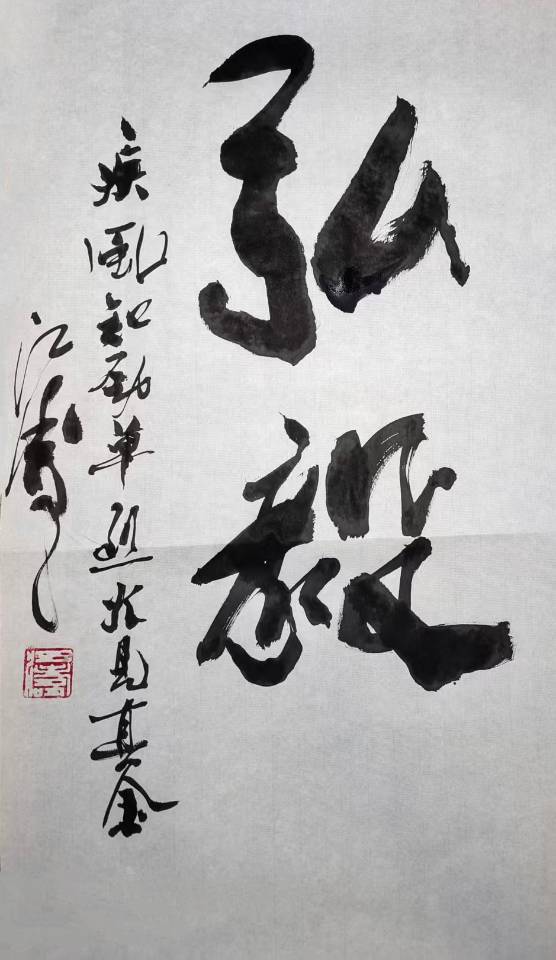 弘毅
疾風知勁草烈火見真金
江濤